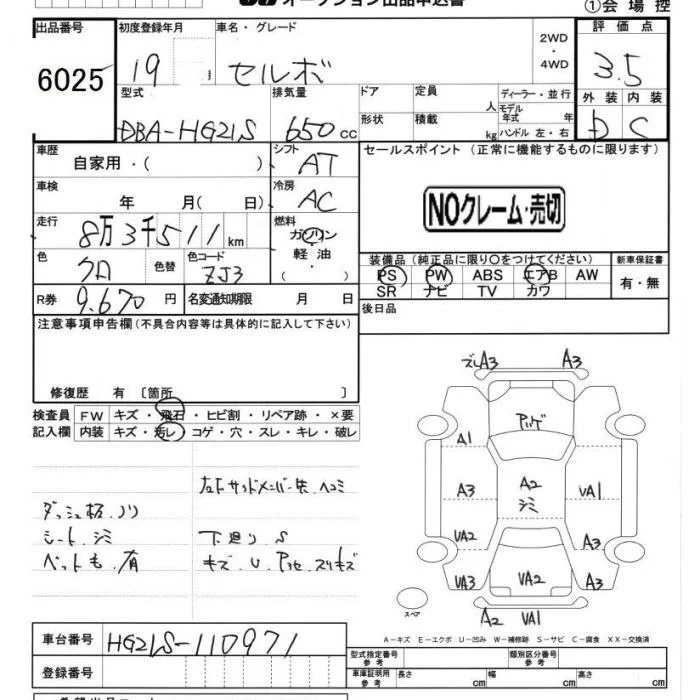 オークション出品申込書
①会場控
出品番号 初度登録年月 車名・グレード 2WD・4WD 評価点
6025 19 月 セルボ 3.5
型式 排気量 ドア 定員 人 ディーラー・並行 外装 内装
DBA-HG21S 650cc 形状 積載 kg モデル年式 年 ハンドル 左・右 D C
車歴 自家用・( ) シフト AT セールスポイント (正常に機能するものに限ります)
車検 年 月( 日) 冷房 AC
NOクレーム・売切
走行 8万3千511km 燃料 ガソリン 軽油 ・( )
色 クロ 色替 色コード ZJ3
装備品 (純正品に限り〇をつけてください) 新車保証書
PS PW ABS エアB AW 有・無
SR ナビ TV カワ
R券 9.670円 名変通知期限 月 日 後日品
注意事項申告欄 (不具合内容等は具体的に記入して下さい)
修復歴 有 〔箇所 〕
検査員 FW キズ・飛石・ヒビ割・リペア跡・×要
記入欄 内装 キズ・汚レ・コゲ・穴・スレ・キレ・破レ
左右サイドメンバー先 ヘコミ
ダッシュ板.ノリ
シート.シミ 下廻り S
ペットも.有 キズ.U.
ズレA3 A3
A1
A3 A2 シミ UA1
UA2 A3
UA3 UA2 A3
スペア A2 UA1
A-キズ E-エクボ U-凹み W-補修跡 S-サビ C-腐食 XX-交換済
車台番号 HG21S-110971 型式指定番号 参考 類別区分番号 参考
登録番号 車庫証明用 参考 長さ cm 幅 cm 高さ cm